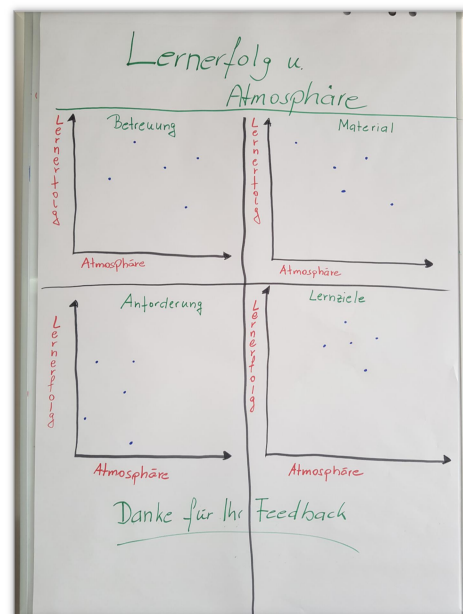 Lernerfolg u.
Atmosphäre
Betreuung
Lernerfolg
Atmosphäre
Material
Lernerfolg
Atmosphäre
Anforderung
Lernerfolg
Atmosphäre
Lernziele
Lernerfolg
Atmosphäre
Danke für Ihr Feedback